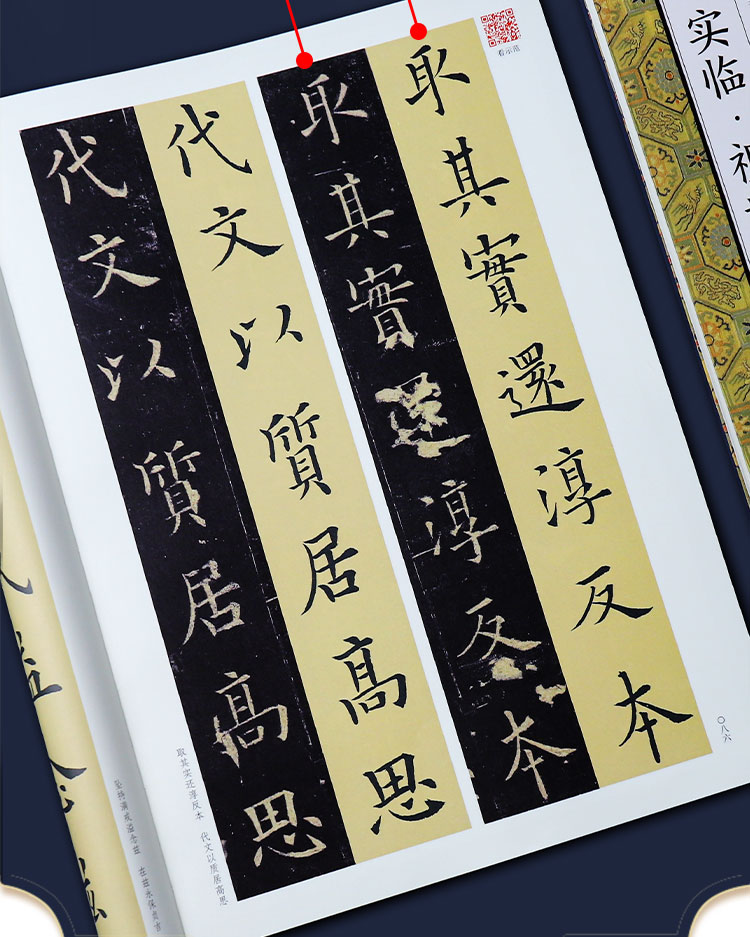 实临·
看示范
取其實還淳反本
取其實還淳反本
代文以質居髙思
代文以質居髙思
〇八六
取其实还淳反本 代文以质居高思
坠持满戒溢念兹 在兹永保贞吉